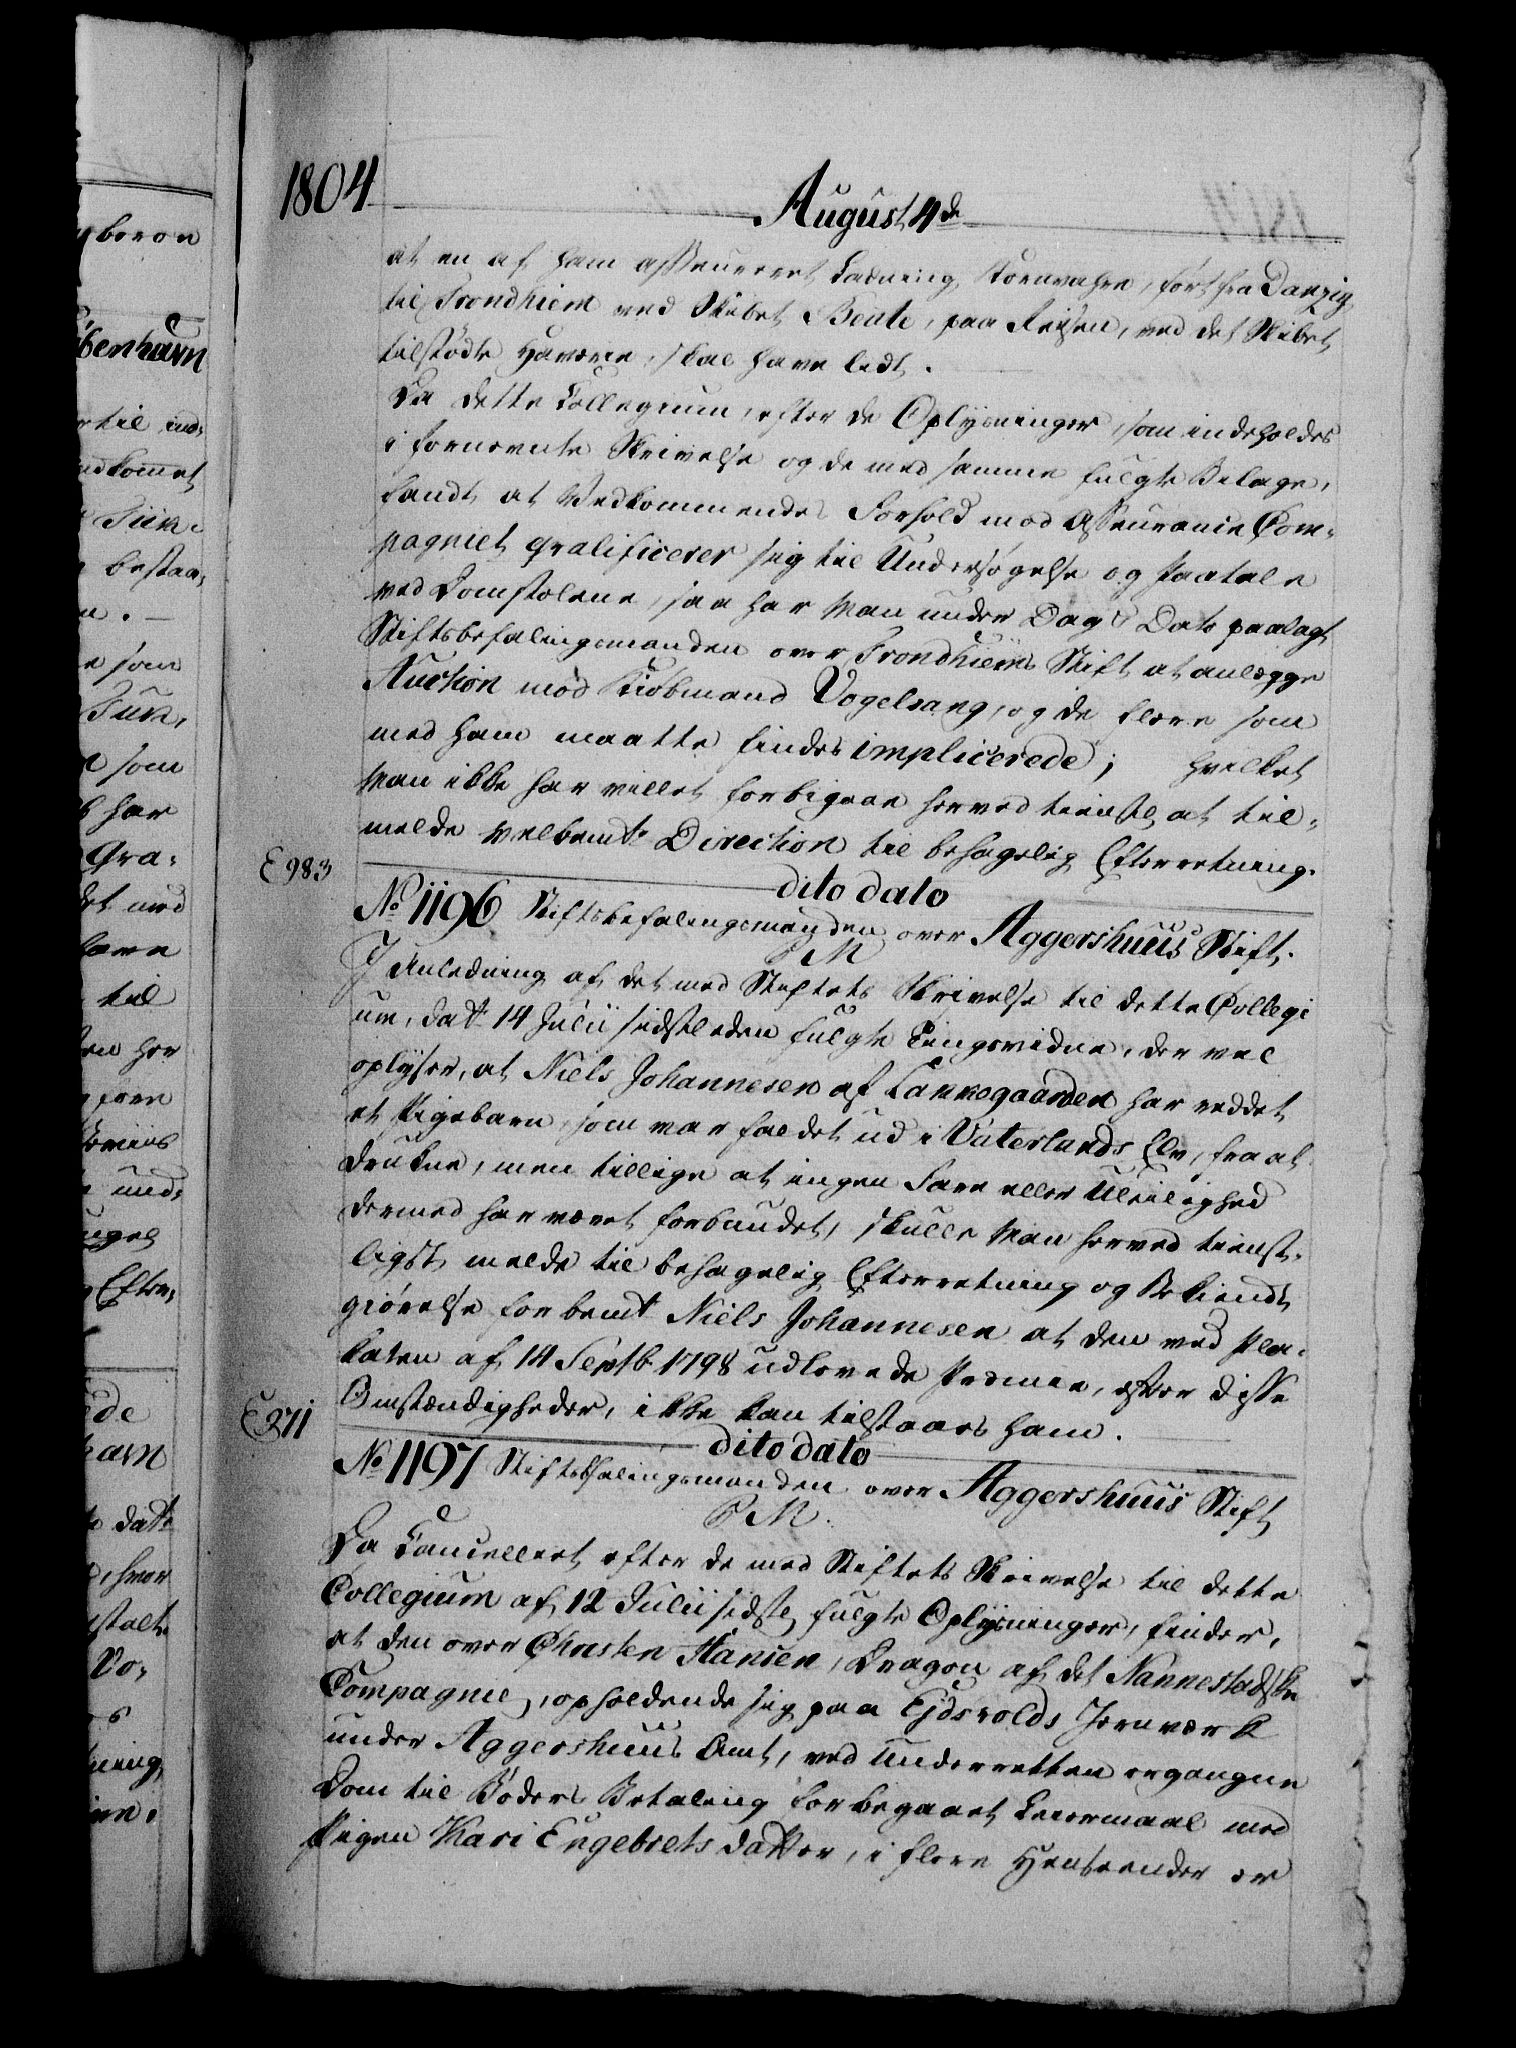 1804
August 4de
at en af ham assureeret Ladning Kornvahre, ført fra Danzig
til Trondhiem med Skibet Beate, paa Reisen, ved det Skibet
tilstødte Haverie, skal have lidt.
Da dette Collegium, efter de Oplysninger, som indeholdes
i fornevnte Skrivelse og de med samme fulgte Bilage,
fandt at Vedkommendes Forhold mod Assurance Com-
pagniet qvalificerer sig til Undersøgelse og Paatale
ved Domstolene, saa har Man under Dags Dato paalagt
Stiftsbefalingsmanden over Trondhiems Stift at anlægge
Auction mod Kiøbmand Vogelsang, og de flere som
med ham maatte findes implicerede; hvilket
Man ikke har villet forbigaae herved tienstl at til-
melde velbemte Direction til behagelig Efterretning.
E 983
dito dato
No 1196 Stiftsbefalingsmanden over Aggershuus Stift.
P M
I Anledning af det med Stiftets Skrivelse til dette Collegi
um, dat 14 Julii sidstleden fulgte Tingsvidne, der vel
oplyser, at Niels Johannesen af Lakkegaarden har reddet
et Pigebarn, som var faldet ud i Vaterlands Elv, fra at
drukne, men tillige at ingen Fare eller Uleilighed
dermed har været forbundet, skulle Man herved tienst-
ligst melde til behagelig Efterretning og Bekiendt
giørelse for bemte Niels Johannesen at den ved Pla-
katen af 14 Septb 1798 udlovede Præmie, efter disse
Omstændigheder, ikke kan tilstaaes ham.
E 371
dito dato
No 1197 Stiftsbefalingsmanden over Aggershuus Stift
P M.
Da Cancelliet efter de med Stiftets Skrivelse til dette
Collegium af 12 Julii sidstl fulgte Oplysninger, finder,
at den over Christen Hansen, Dragon af det Nannestadske
Compagnie, opholdende sig paa Ejdsvolds Jernværk
under Aggershuus Amt, ved Underretten ergangne
Dom til Bøders Betaling for begaaet Leiermaal med
Pigen Kari Engebretsdatter, i flere Henseender er